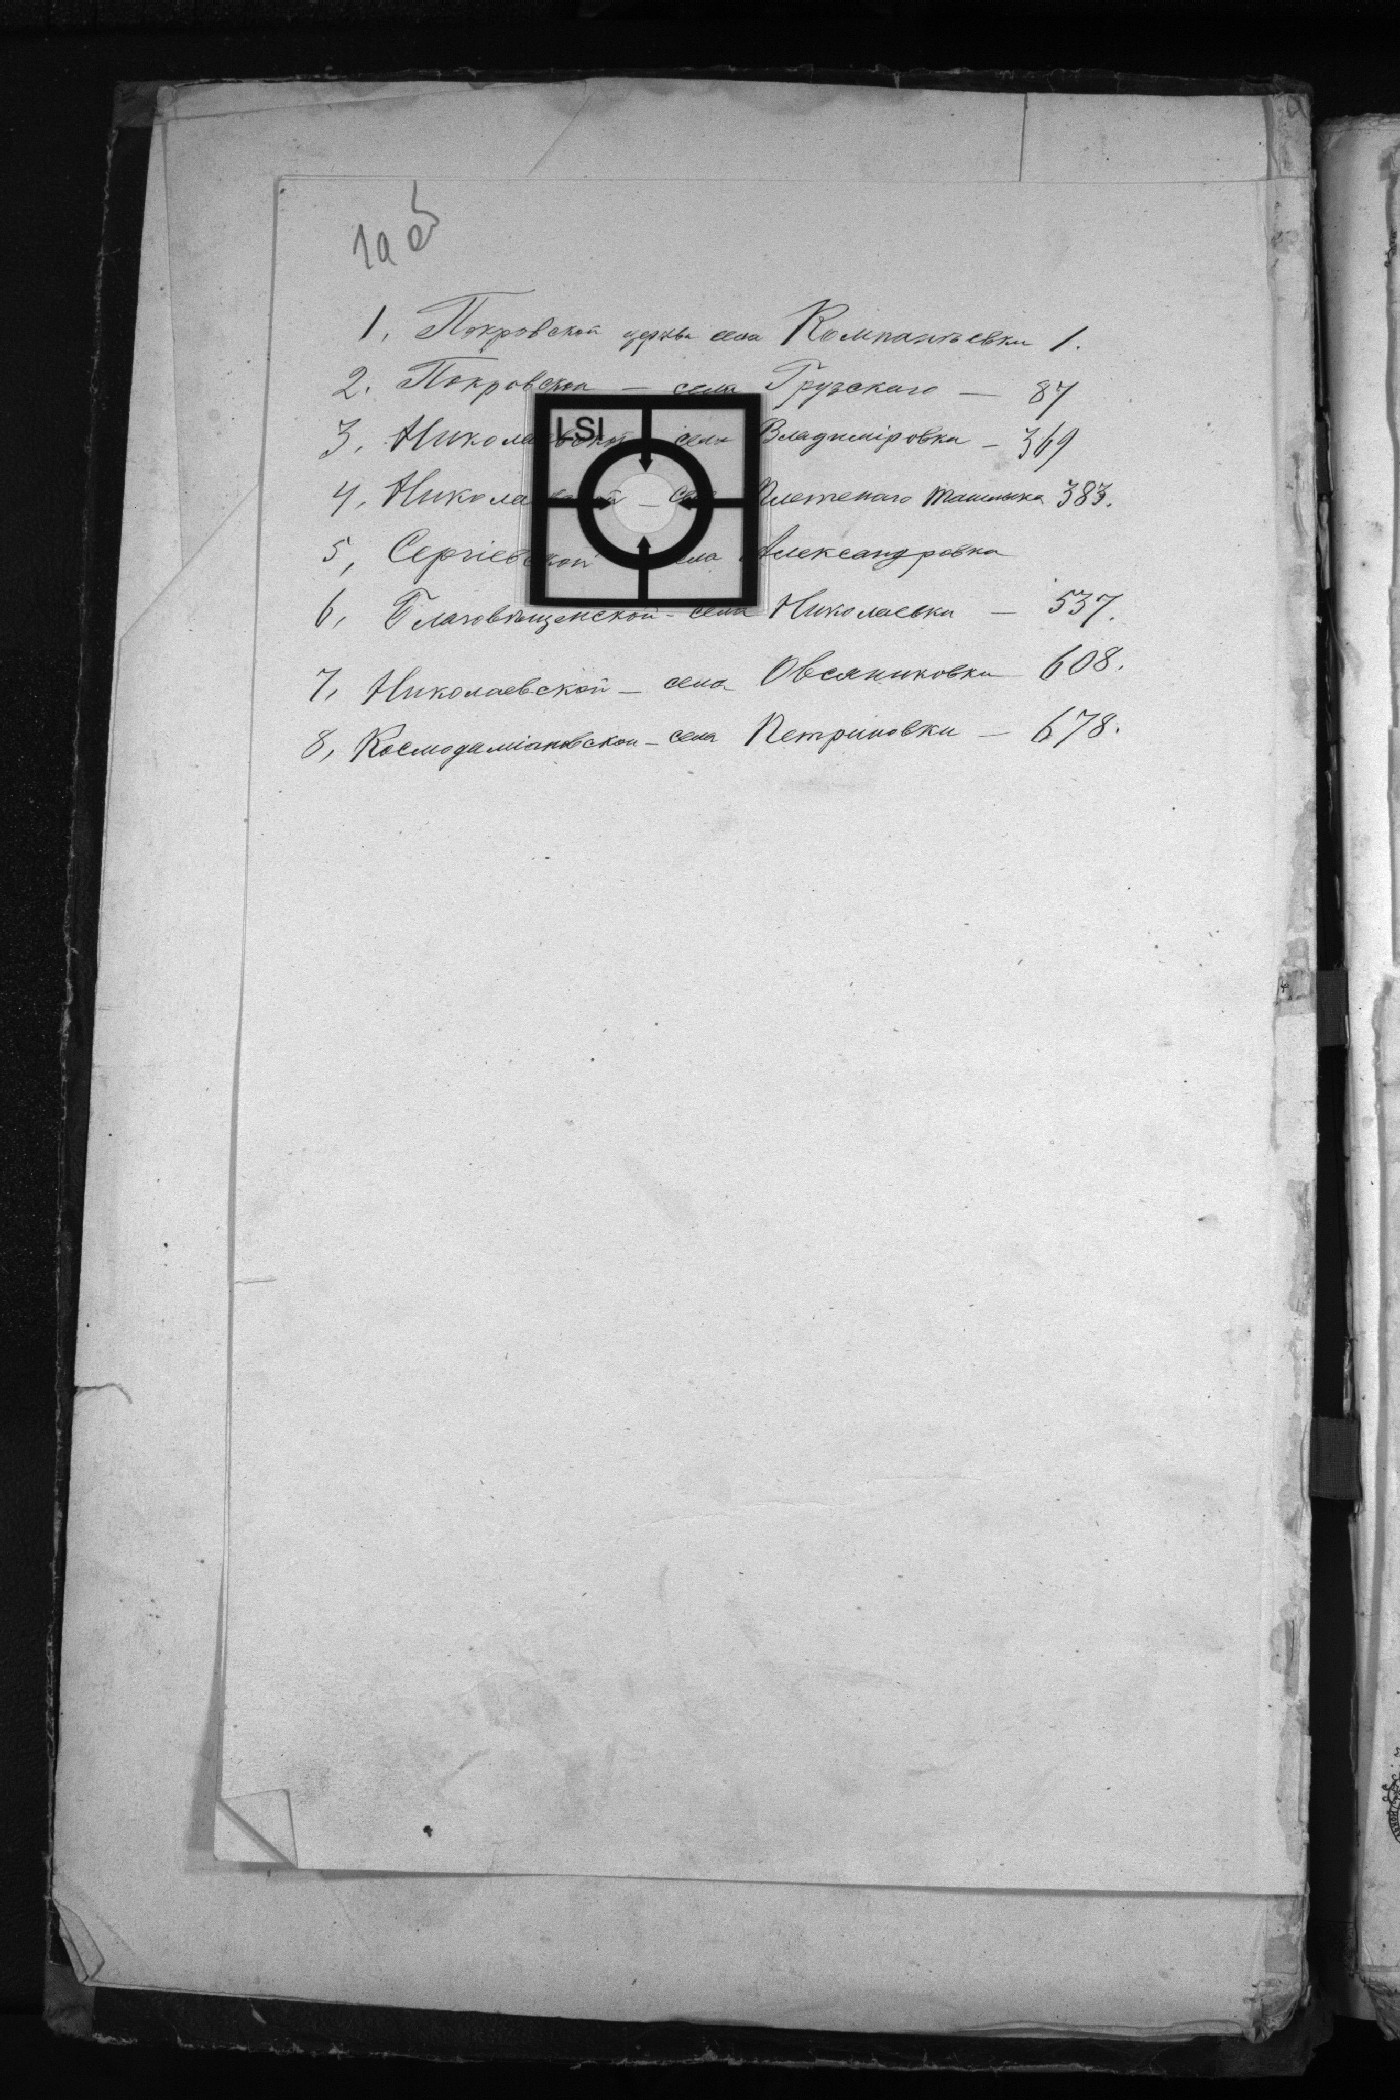 1а об
1. Покровской церкви села Компанѣевки 1.
2. Покровской — села Грузскаго — 87
LSI
3. Николаевской села Владиміровки — 369
4. Николаевской — села Плетенаго Ташлыка 383.
5, Сергіевской села Александровка
6, Благовѣщенской — села Николаевки — 537.
7, Николаевской — села Овсяниковки 608.
8, Космодаміановской — села Петриновки — 678.